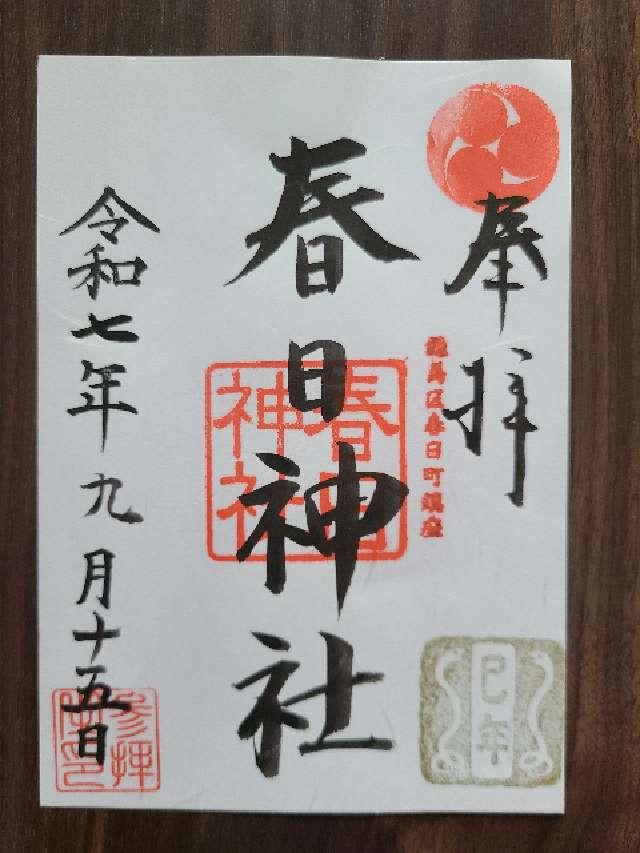 奉拝
練馬区春日町鎮座
春日神社
春日神社
巳年
令和七年九月十五日